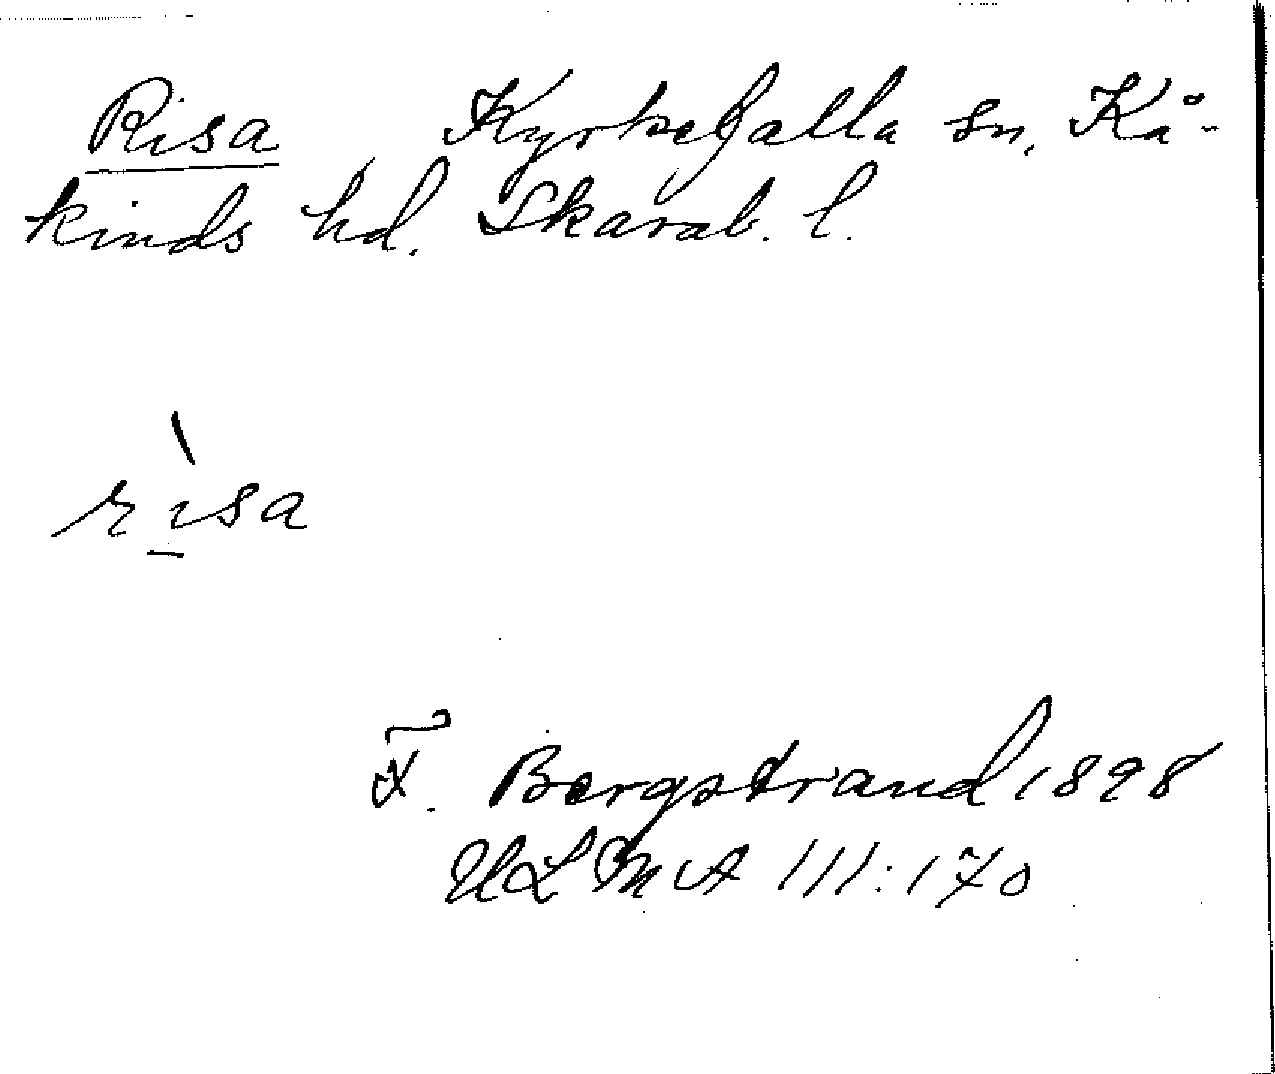 Risa Kyrkefalla sn, Kå-
kinds hd. Skarab. l.
rìsa
F. Bergstrand 1898
ULMA 111:170